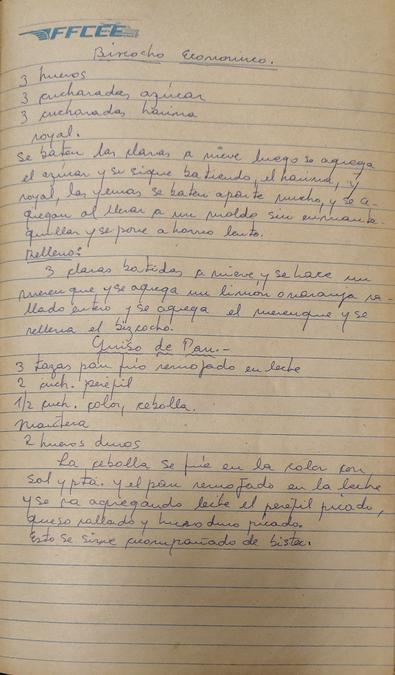 FFCEE
Biscocho Economico.
3 huevos
3 cucharadas azúcar
3 cucharadas harina
royal.
Se baten las claras a nieve luego se agrega
el azúcar y se sigue batiendo, el harina, y
royal, las yemas se baten aparte mucho, y se a-
gregan al llevar a un molde sin enmante-
quillar y se pone a horno lento.
Relleno:
3 claras batidas a nieve, y se hace un
merengue y se agrega un limón o naranja ra-
llado entero y se agrega el merengue y se
rellena el bizcocho.
Guiso de Pan.-
3 tazas pan frio remojado en leche
2 cuch. perejil
1/2 cuch. color, cebolla.
manteca
2 huevos duros
La cebolla se frie en la color con
sal y pta. y el pan remojado en la leche
y se va agregando leche el perejil picado,
queso rallado y huevo duro picado.
Esto se sirve acompañado de bistec.